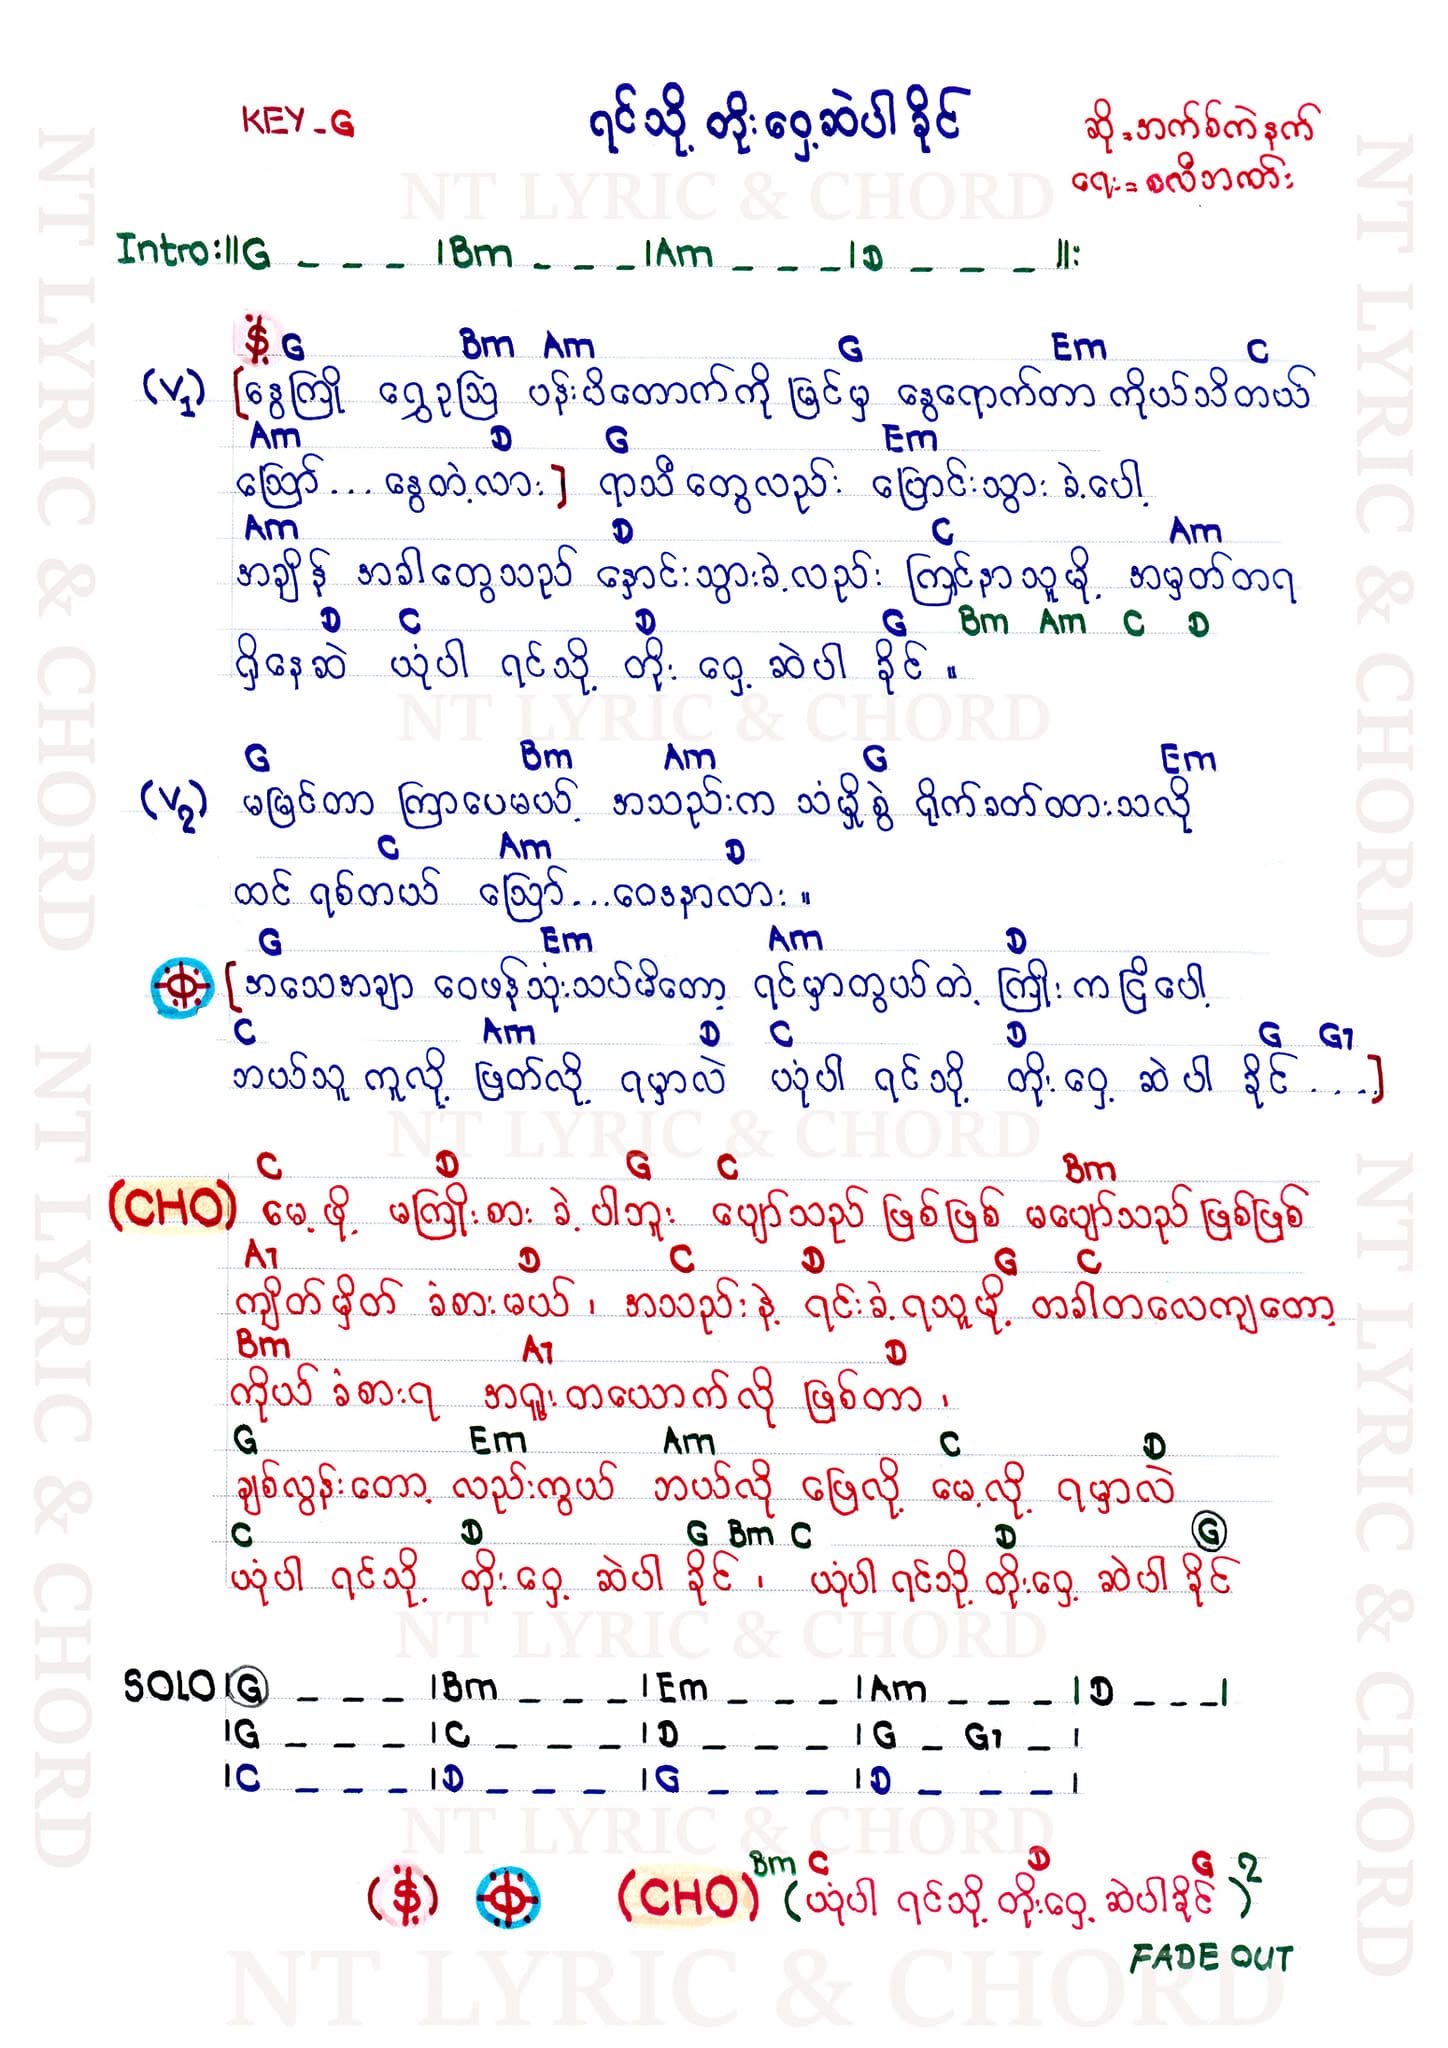 KEY - G
ရင်သို့ တိုးဝှေ့ဆဲပါ ခိုင်
ဆို = အက်စ်ကဲနက်
ရေး = စလီဘဏ်း
NT LYRIC & CHORD
Intro: ||G _ _ _ |Bm _ _ _ |Am _ _ _ |D _ _ _ ||:
G Bm Am G Em C
(V1) [နွေကြို ရွှေဥဩ ပန်းပိတောက်ကို မြင်မှ နွေရောက်တာ ကိုယ်သိတယ်
Am D G Em
ဪ... နွေတဲ့လား] ရာသီတွေလည်း ပြောင်းသွားခဲ့ပေါ့
Am D C Am
အချိန် အခါတွေသည် နှောင်းသွားခဲ့လည်း ကြင်နာသူမို့ အမှတ်တရ
D C D G Bm Am C D
ရှိနေဆဲ ယုံပါ ရင်သို့ တိုး ဝှေ့ ဆဲပါ ခိုင် ။
NT LYRIC & CHORD
G Bm Am G Em
(V2) မမြင်တာ ကြာပေမယ့် အသည်းက သံမှိုစွဲ ရိုက်ခတ်ထားသလို
C Am D
ထင် ရစ်တယ် ဪ...ဝေဒနာလား ။
G Em Am D
[အသေအချာ ဝေဖန်သုံးသပ်မိတော့ ရင်မှာတွယ်တဲ့ ကြိုးကငြိပေါ့
C Am D C D G G7
ဘယ်သူ ကူလို့ ဖြတ်လို့ ရမှာလဲ ယုံပါ ရင်သို့ တိုးဝှေ့ ဆဲပါ ခိုင် ....]
NT LYRIC & CHORD
C D G C Bm
(CHO) မေ့ဖို့ မကြိုးစား ခဲ့ပါဘူး ပျော်သည် ဖြစ်ဖြစ် မပျော်သည် ဖြစ်ဖြစ်
A7 D C D G C
ကျိတ်မှိတ် ခံစားမယ် ၊ အသည်းနဲ့ ရင်းခဲ့ရသူမို့ တခါတလေကျတော့
Bm A7 D
ကိုယ် ခံစားရ အရူးတယောက်လို ဖြစ်တာ ၊
G Em Am C D
ချစ်လွန်းတော့ လည်းကွယ် ဘယ်လို ဖြေလို့ မေ့လို့ ရမှာလဲ
C D G Bm C D G
ယုံပါ ရင်သို့ တိုးဝှေ့ ဆဲပါ ခိုင် ၊ ယုံပါ ရင်သို့ တိုးဝှေ့ ဆဲပါ ခိုင်
NT LYRIC & CHORD
SOLO |G _ _ _ |Bm _ _ _ |Em _ _ _ |Am _ _ _ |D _ _ _ |
|G _ _ _ |C _ _ _ |D _ _ _ |G _ G7 _ |
|C _ _ _ |D _ _ _ |G _ _ _ |D _ _ _ |
NT LYRIC & CHORD
Bm C D G
(CHO) (ယုံပါ ရင်သို့ တိုးဝှေ့ ဆဲပါ ခိုင်)2
FADE OUT
NT LYRIC & CHORD
NT LYRIC & CHORD
NT LYRIC & CHORD
NT LYRIC & CHORD
NT LYRIC & CHORD